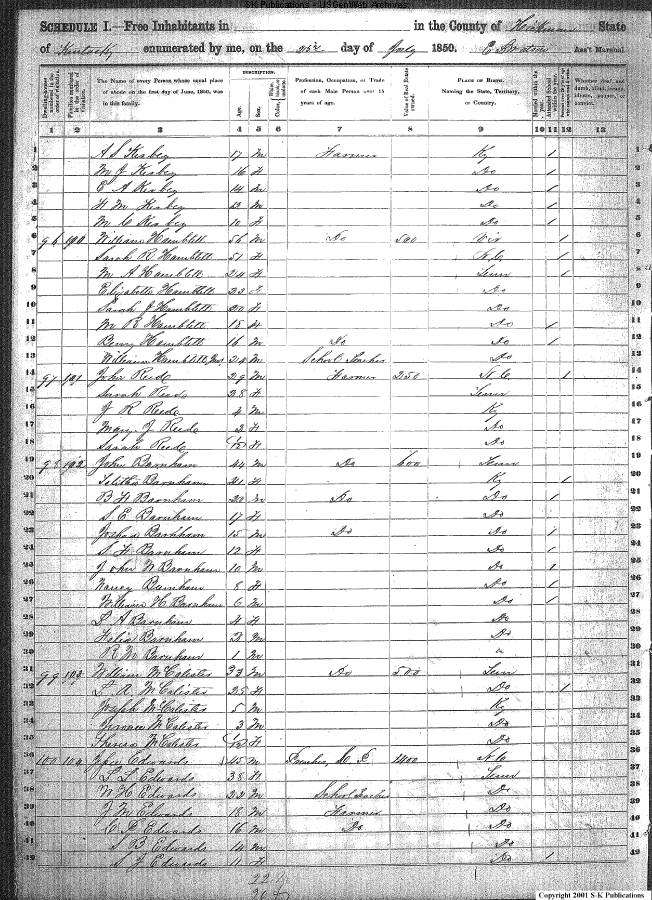 S-K Publications - USGenWeb Archives
SCHEDULE I.—Free Inhabitants in in the County of Hickman State
of Kentucky enumerated by me, on the day of July 1850. Ass't Marshal.
DESCRIPTION.
Dwelling-houses numbered in the order of visitation. Families numbered in the order of visitation. The Name of every Person whose usual place of abode on the first day of June, 1850, was in this family. Age. Sex. Color, White, black, or mulatto. Profession, Occupation, or Trade of each Male Person over 15 years of age. Value of Real Estate owned. PLACE OF BIRTH. Naming the State, Territory, or Country. Married within the year. Attended School within the year. Whether deaf and dumb, blind, insane, idiotic, pauper, or convict.
1 2 3 4 5 6 7 8 9 10 11 12 13
1 A S Kirbey 17 M Farmer Ky 1 1
2 M J Kirbey 16 F Do 1 2
3 E A Kirbey 14 M Do 1 3
4 Kirbey 13 M Do 1 4
5 M C Kirbey 10 F Do 1 5
6 96 190 William Hamblett 56 M Do 500 Vir 1 6
7 Sarah R Hamblett 51 F N.C. 1 7
8 M A Hamblett 24 F Tenn 1 8
9 Elizabeth Hamblett 22 F Do 9
10 Sarah J Hamblett 20 F Do 10
11 M R Hamblett 18 F Do 1 11
12 Berry Hamblett 16 M Do Do 1 12
13 William Hamblett 24 M School Teacher Do 13
14 97 191 John Reede 29 M Farmer 250 N.C. 1 14
15 Sarah Reede 28 F Tenn 15
16 J R Reede 4 M Ky 16
17 Mary J Reede 2 F Do 17
18 Sarah Reede F Do 18
19 98 192 John Barnham 44 M Do 600 Tenn 19
20 Telitha Barnham 41 F Ky 1 20
21 B F Barnham 20 M Do Do 1 21
22 S E Barnham 17 F Do 22
23 Barnham 15 M Do Do 1 23
24 S F Barnham 12 F Do 1 24
25 John W Barnham 10 M Do 1 25
26 Nancy Barnham 8 F Do 1 26
27 William H Barnham 6 M Do 1 27
28 L A Barnham 4 F Do 28
29 Barnham 2 M Do 29
30 R W Barnham 1 M " 30
31 99 193 William McCalister 33 M Do 500 Tenn 31
32 L R McCalister 25 F Do 1 32
33 Joseph McCalister 5 M Ky 33
34 McCalister 3 M Do 34
35 Theresa McCalister F Do 35
36 100 194 Edwards 45 M Preacher 1400 N.C. 36
37 L L Edwards 38 F Tenn 37
38 W H Edwards 22 M School Teacher Do 38
39 J M Edwards 18 M Farmer Do 39
40 Edwards 16 M Do Do 40
41 S B Edwards 14 M Do 41
42 S J Edwards 11 F Do 1 42
22
20
Copyright 2001 S-K Publications